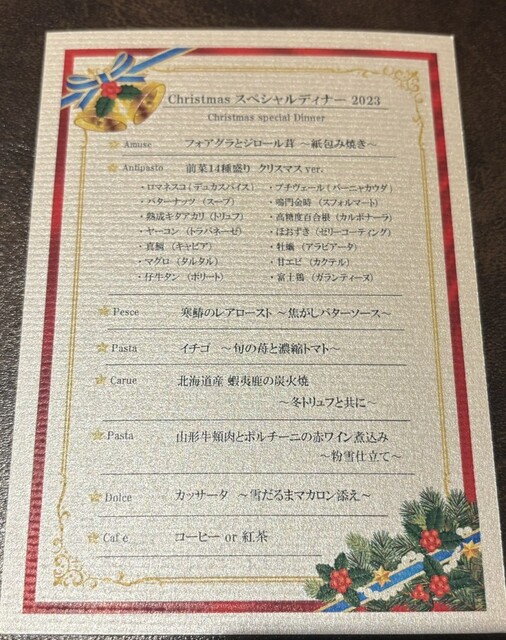 Christmas スペシャルディナー 2023
Christmas special Dinner
Amuse フォアグラとジロール茸 ～紙包み焼き～
Antipasto 前菜14種盛り クリスマス ver.
・ロマネスコ（デュカスパイス） ・プチヴェール（バーニャカウダ）
・バターナッツ（スープ） ・鳴門金時（スフォルマート）
・熟成キタアカリ（トリュフ） ・高糖度百合根（カルボナーラ）
・ヤーコン（トラパネーゼ） ・ほおずき（ゼリーコーティング）
・真鯛（キャビア） ・牡蠣（アラビアータ）
・マグロ（タルタル） ・甘エビ（カクテル）
・仔牛タン（ボリート） ・富士鶏（ガランティーヌ）
Pesce 寒鰆のレアロースト ～焦がしバターソース～
Pasta イチゴ ～旬の苺と濃縮トマト～
Carue 北海道産 蝦夷鹿の炭火焼
～冬トリュフと共に～
Pasta 山形牛頬肉とポルチーニの赤ワイン煮込み
～粉雪仕立て～
Dolce カッサータ ～雪だるまマカロン添え～
Cafe コーヒー or 紅茶